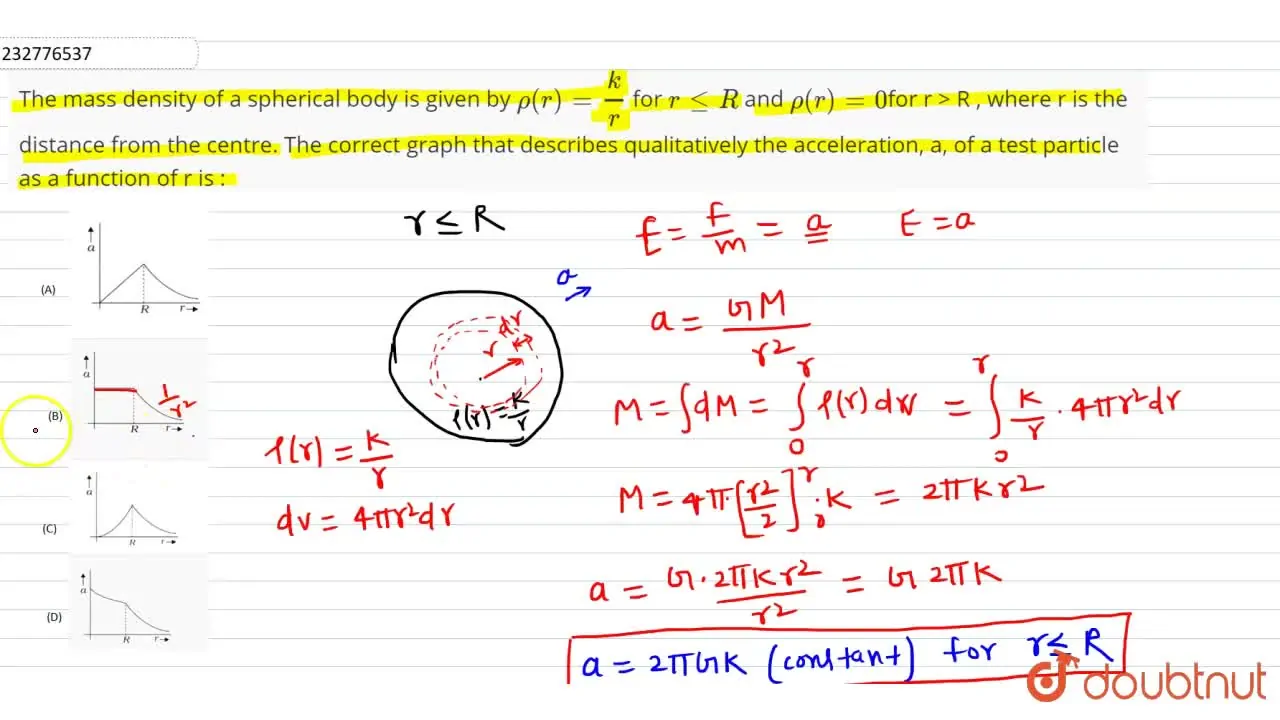 232776537
The mass density of a spherical body is given by ρ(r) = k/r for r ≤ R and ρ(r) = 0for r > R , where r is the
distance from the centre. The correct graph that describes qualitatively the acceleration, a, of a test particle
as a function of r is :
r ≤ R
E = F/m = a
E = a
(A)
a
R
r→
a
dr
r
ρ(r) = K/r
a = GM/r²
(B)
a
1/r²
R
r→
M = ∫dM = ∫₀ʳ ρ(r) dv = ∫₀ʳ K/r · 4πr²dr
ρ(r) = K/r
M = 4π[r²/2]₀ʳ · K = 2πKr²
dv = 4πr²dr
(C)
a
R
r→
a = G·2πKr²/r² = G 2πK
(D)
a
R
r→
a = 2πGK (constant) for r ≤ R
doubtnut